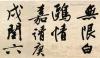 無限白
鷗情
嘉靖庚
戌閏六